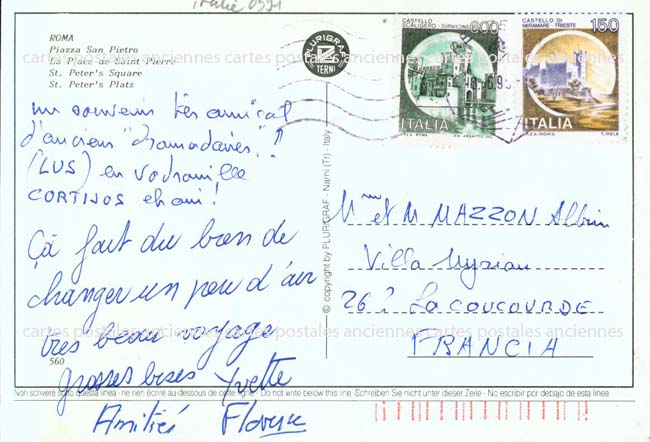 italie 0591
ROMA
Piazza San Pietro
La Place de Saint Pierre
St. Peter's Square
St. Peter's Platz
PLURIGRAF
TERNI
CASTELLO SCALIGERO - SIRMIONE
600
ITALIA
CASTELLO DI MIRAMARE - TRIESTE
150
ITALIA
I.P.Z.S. - ROMA
un souvenir très amical
d'anciens "dromadaires"!
(LUS) en vadrouille
CORTIJOS et oui!
Çà fait du bien de
changer un peu d'air
très beau voyage
grosses bises Yvette
Amitiés Florence
© copyright by PLURIGRAF - Narni (Tr) - Italy
Mme et M MAZZON Albin
Villa Myriam
26 LA COUCOURDE
FRANCIA
cartes postales anciennes cartes postales anciennes
cartes postales anciennes cartes postales anciennes
560
Non scrivere sotto questa linea - ne rien écrire au dessous de cette ligne - Do not write below this line - Schreiben Sie nicht unter dieser Zeile - No escribir por debajo de esta linea